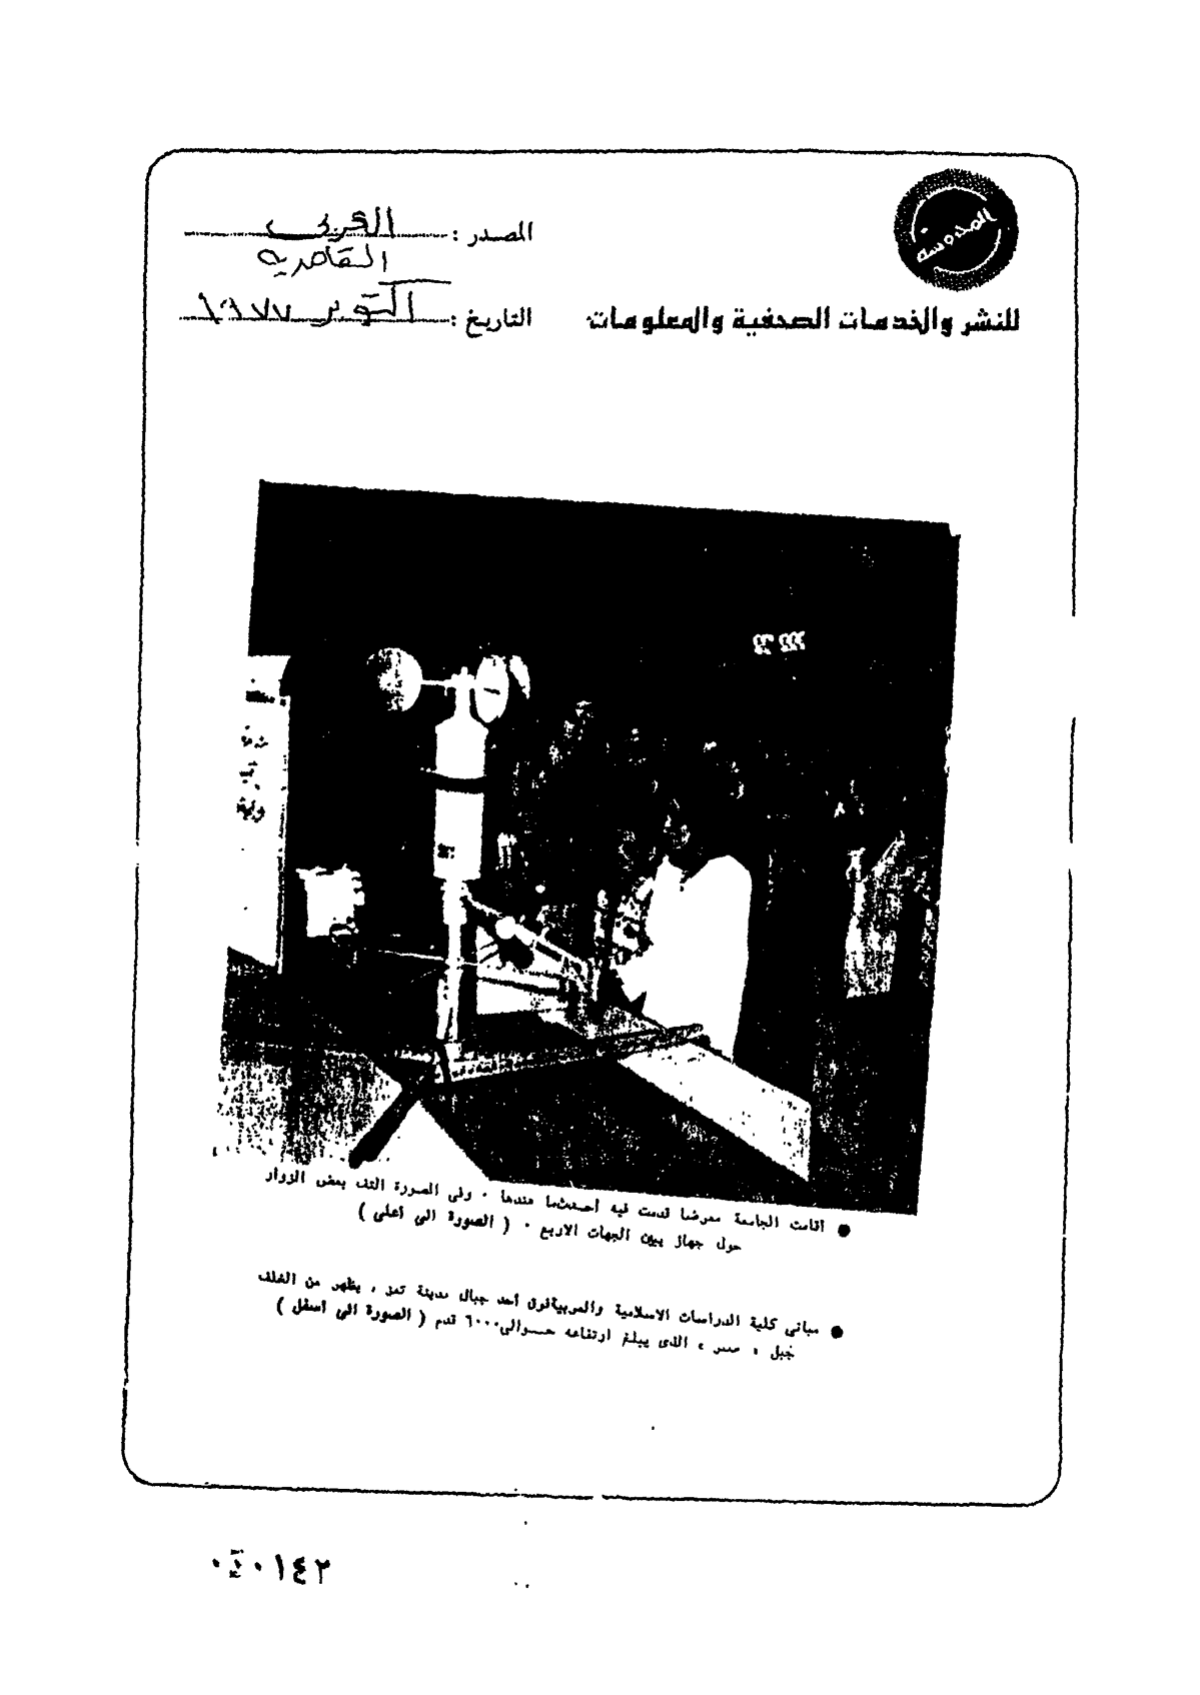 المحروسة
للنشر والخدمات الصحفية والمعلومات
المصدر : العربى
القاهرية
التاريخ : أكتوبر ١٩٧٧
● أقامت الجامعة معرضا قدمت فيه أحدث ما عندها ٠ وفى الصورة التف بعض الزوار
حول جهاز يبين الجهات الاربع ٠ ( الصورة الى أعلى )
● مبانى كلية الدراسات الاسلامية والعربية فوق أحد جبال مدينة ، يظهر من الخلف
جبل « صبر » الذى يبلغ ارتفاعه حوالى ٦٠٠٠ قدم ( الصورة الى أسفل )
٠١٤٢